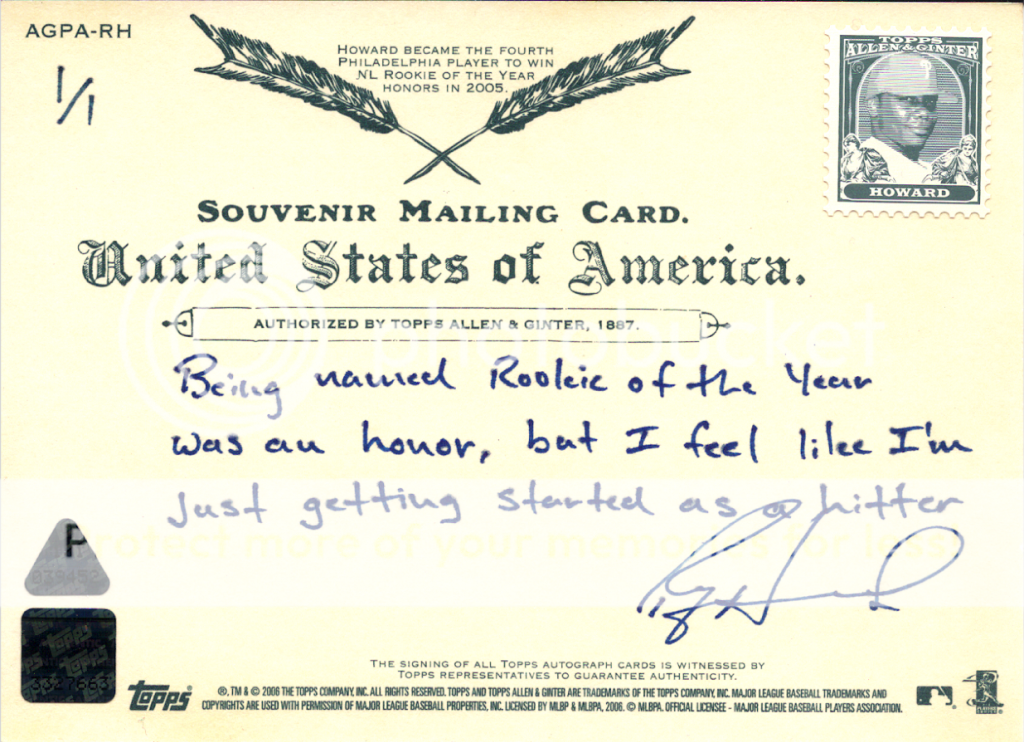 AGPA-RH
1/1
HOWARD BECAME THE FOURTH
PHILADELPHIA PLAYER TO WIN
NL ROOKIE OF THE YEAR
HONORS IN 2005.
TOPPS
ALLEN & GINTER
HOWARD
SOUVENIR MAILING CARD.
United States of America.
AUTHORIZED BY TOPPS ALLEN & GINTER, 1887.
photobucket
Being named Rookie of the Year
was an honor, but I feel like I'm
just getting started as a hitter
Protect more of your memories for less!
P
THE SIGNING OF ALL TOPPS AUTOGRAPH CARDS IS WITNESSED BY
TOPPS REPRESENTATIVES TO GUARANTEE AUTHENTICITY.
topps
®, TM & © 2006 THE TOPPS COMPANY, INC. ALL RIGHTS RESERVED. TOPPS AND TOPPS ALLEN & GINTER ARE TRADEMARKS OF THE TOPPS COMPANY, INC. MAJOR LEAGUE BASEBALL TRADEMARKS AND
COPYRIGHTS ARE USED WITH PERMISSION OF MAJOR LEAGUE BASEBALL PROPERTIES, INC. LICENSED BY MLBP & MLBPA, 2006. © MLBPA. OFFICIAL LICENSEE - MAJOR LEAGUE BASEBALL PLAYERS ASSOCIATION.